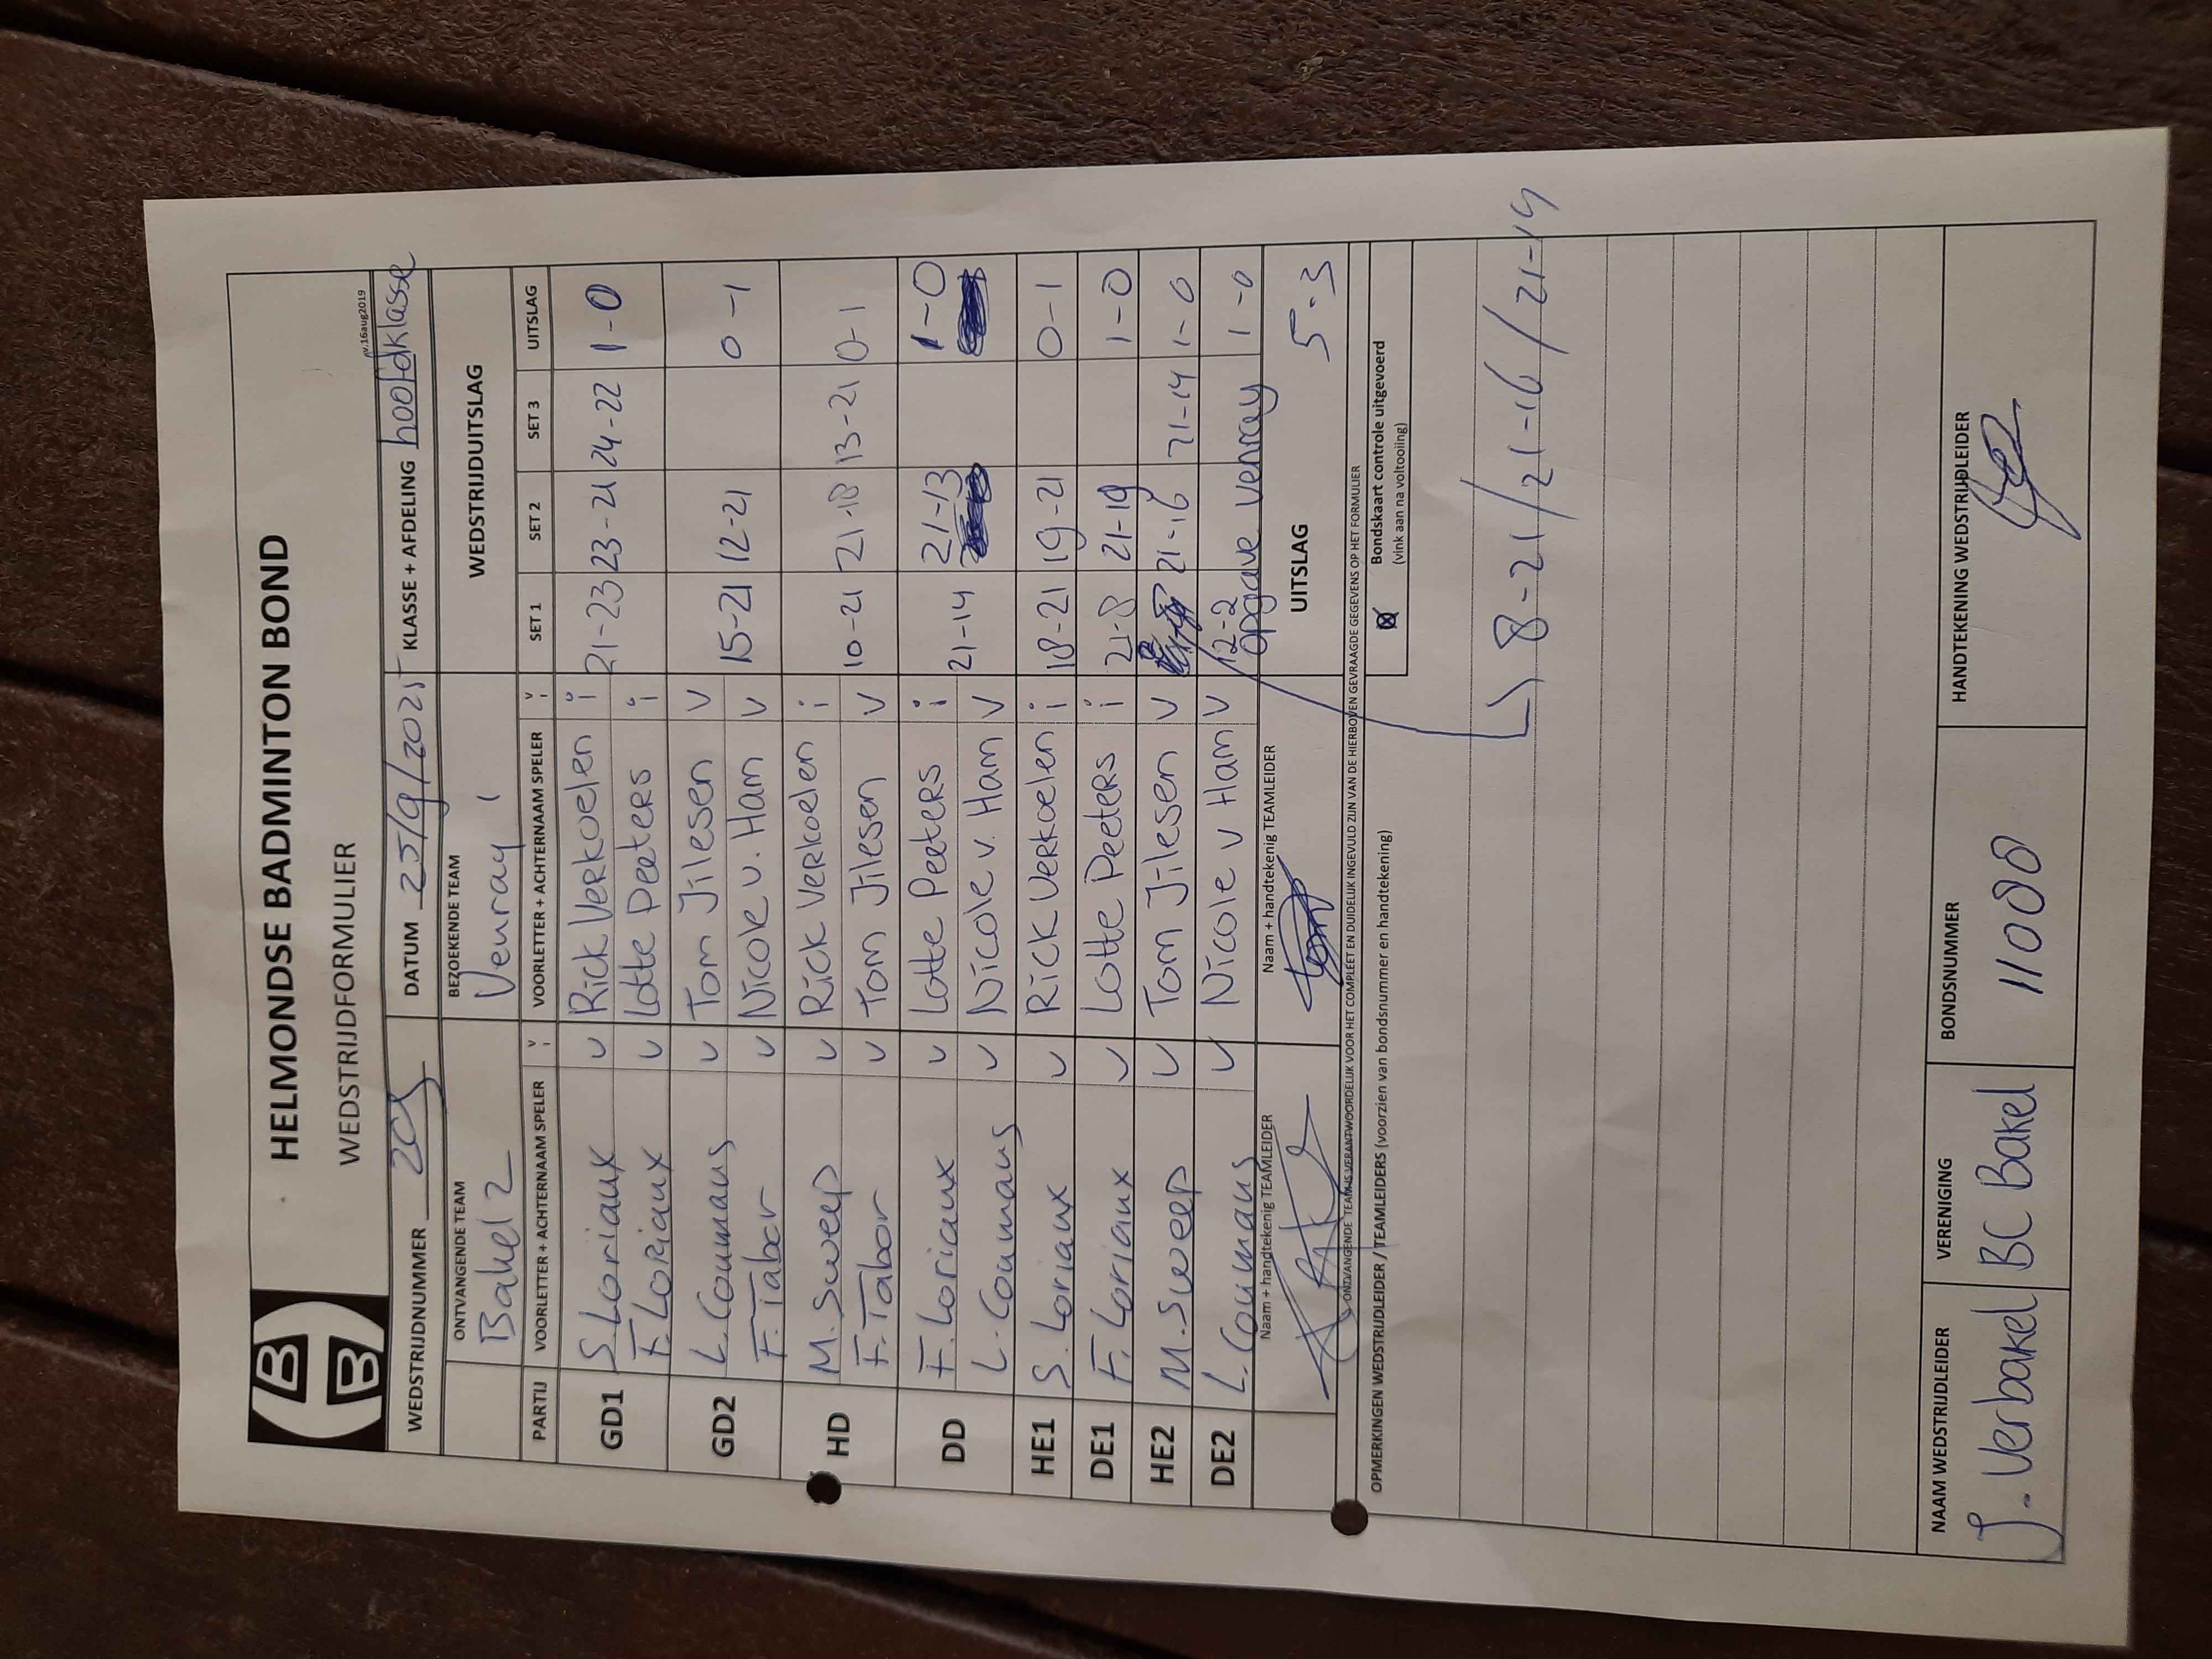 HELMONDSE BADMINTON BOND
WEDSTRIJDFORMULIER
rv.16aug2019
WEDSTRIJDNUMMER DATUM 25/9/2025 KLASSE + AFDELING hoofdklasse
ONTVANGENDE TEAM BEZOEKENDE TEAM WEDSTRIJDUITSLAG
Bakel 2 Venray 1
PARTIJ VOORLETTER + ACHTERNAAM SPELER V i VOORLETTER + ACHTERNAAM SPELER V i SET 1 SET 2 SET 3 UITSLAG
GD1 S. Loriaux v Rick Verkoelen i 21-23 23-21 24-22 1-0
F. Loriaux v Lotte Peeters i
GD2 L. Coumans v Tom Jilesen v 15-21 12-21 0-1
F. Tabor v Nicole v. Ham v
HD M. Sweep v Rick Verkoelen i 10-21 21-18 13-21 0-1
F. Tabor v Tom Jilesen v
DD F. Loriaux v Lotte Peeters i 21-14 21-13 1-0
L. Coumans v Nicole v. Ham v
HE1 S. Loriaux v Rick Verkoelen i 18-21 19-21 0-1
DE1 F. Loriaux v Lotte Peeters i 21-8 21-19 1-0
HE2 M. Sweep v Tom Jilesen v 21-16 21-14 1-0
DE2 L. Coumans v Nicole v Ham v 12-2 1-0
opgave venray
Naam + handtekenig TEAMLEIDER Naam + handtekenig TEAMLEIDER UITSLAG 5-3
ONTVANGENDE TEAM IS VERANTWOORDELIJK VOOR HET COMPLEET EN DUIDELIJK INGEVULD ZIJN VAN DE HIERBOVEN GEVRAAGDE GEGEVENS OP HET FORMULIER
OPMERKINGEN WEDSTRIJDLEIDER / TEAMLEIDERS (voorzien van bondsnummer en handtekening)
Bondskaart controle uitgevoerd
(vink aan na voltooiing)
8-21/21-16/21-14
NAAM WEDSTRIJDLEIDER VERENIGING BONDSNUMMER HANDTEKENING WEDSTRIJDLEIDER
J. Verbakel BC Bakel 11080